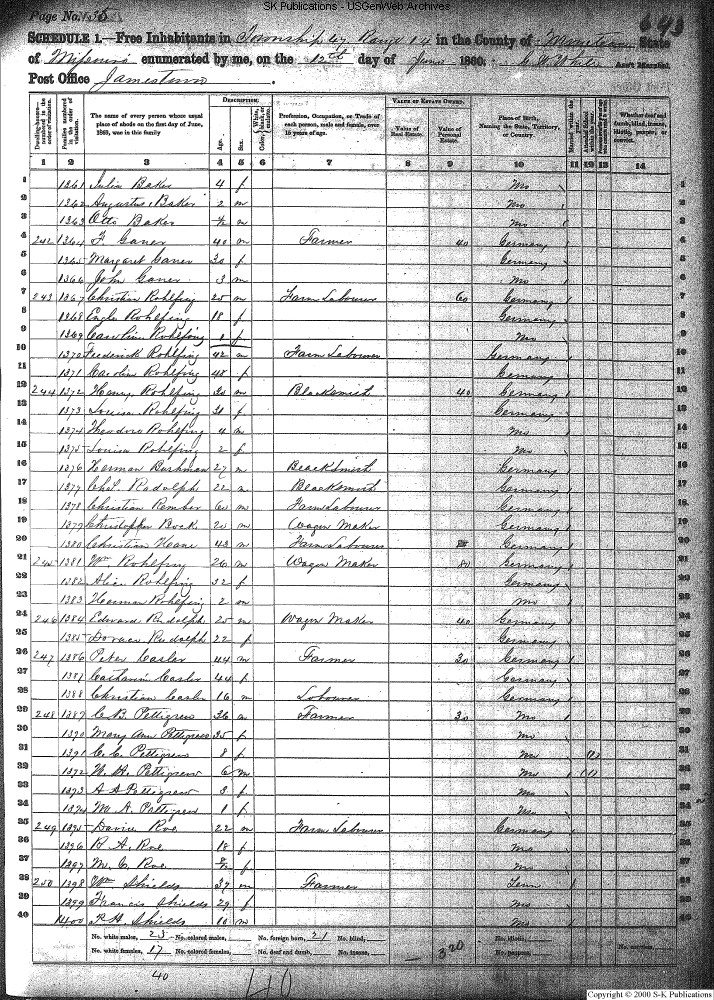 SK Publications - USGenWeb Archives
Page No. 135
643
SCHEDULE 1.—Free Inhabitants in Township 47 Range 14 in the County of Moniteau State
of Missouri enumerated by me, on the 12th day of June 1860. Ass't Marshal.
Post Office Jamestown.
DESCRIPTION. VALUE OF ESTATE OWNED.
The name of every person whose usual place of abode on the first day of June, 1860, was in this family
Age. Sex.
Profession, Occupation, or Trade of each person, male and female, over 15 years of age.
Value of Real Estate. Value of Personal Estate.
Place of Birth, Naming the State, Territory, or Country.
Whether deaf and dumb, blind, insane, idiotic, pauper, or convict.
1 2 3 4 5 6 7 8 9 10 11 12 13 14
1 1361 Julia Baker 4 f Mo 1
2 1362 Augustus Baker 2 m Mo 2
3 1363 Otto Baker m Mo 3
4 242 1364 F. Ganer 40 m Farmer 40 Germany 4
5 1365 Margaret Ganer 30 f Germany 5
6 1366 John Ganer 3 m Mo 6
7 243 1367 Christian Rohlfing 25 m Farm Labourer 60 Germany 7
8 1368 Engle Rohlfing 18 f Germany 8
9 1369 Caroline Rohlfing 1 f Mo 9
10 1370 Frederick Rohlfing 42 m Farm Labourer Germany 10
11 1371 Carolin Rohlfing 48 f Germany 11
12 244 1372 Henry Rohlfing 30 m Blacksmith 40 Germany 12
13 1373 Louisa Rohlfing 31 f Germany 13
14 1374 Theodore Rohlfing 4 m Mo 14
15 1375 Louisa Rohlfing 2 f Mo 15
16 1376 Herman Bushman 27 m Blacksmith Germany 16
17 1377 Radolph 22 m Blacksmith Germany 17
18 1378 Christian Rember 60 m Farm Labourer Germany 18
19 1379 Christopher Bock 20 m Wagon Maker Germany 19
20 1380 Christian Hane 43 m Farm Labourer Germany 20
21 245 1381 Wm Rohlfing 26 m Wagon Maker 80 Germany 21
22 1382 Rohlfing 32 f Germany 22
23 1383 Herman Rohlfing 2 m Mo 23
24 246 1384 Edward Rudolph 25 m Wagon Maker 40 Germany 24
25 1385 Rudolph 22 f Germany 25
26 247 1386 Peter Casler 44 m Farmer 30 Germany 26
27 1387 Catharin Casler 44 f Germany 27
28 1388 Christian Casler 16 m Labourer Germany 28
29 248 1389 C. B. Pettigrew 36 m Farmer 30 Mo 29
30 1390 Mary Ann Pettigrew 35 f Mo 30
31 1391 C. C. Pettigrew 8 f Mo 31
32 1392 W. H. Pettigrew 6 m Mo 32
33 1393 A A Pettigrew 3 f Mo 33
34 1394 M. A. Pettigrew 1 f Mo 34
35 249 1395 Davie Roe 22 m Farm Labourer Germany 35
36 1396 R. A. Roe 18 f Mo 36
37 1397 M. C. Roe f Mo 37
38 250 1398 Wm Shields 37 m Farmer Tenn 38
39 1399 Francis Shields 29 f Mo 39
40 1400 R H Shields 10 m Mo 40
No. white males, 23 No. colored males, No. foreign born, 21 No. blind, No. idiotic,
No. white females, 17 No. colored females, No. deaf and dumb, No. insane, 320 No. paupers, No. convicts,
40 40
Copyright © 2000 S-K Publications